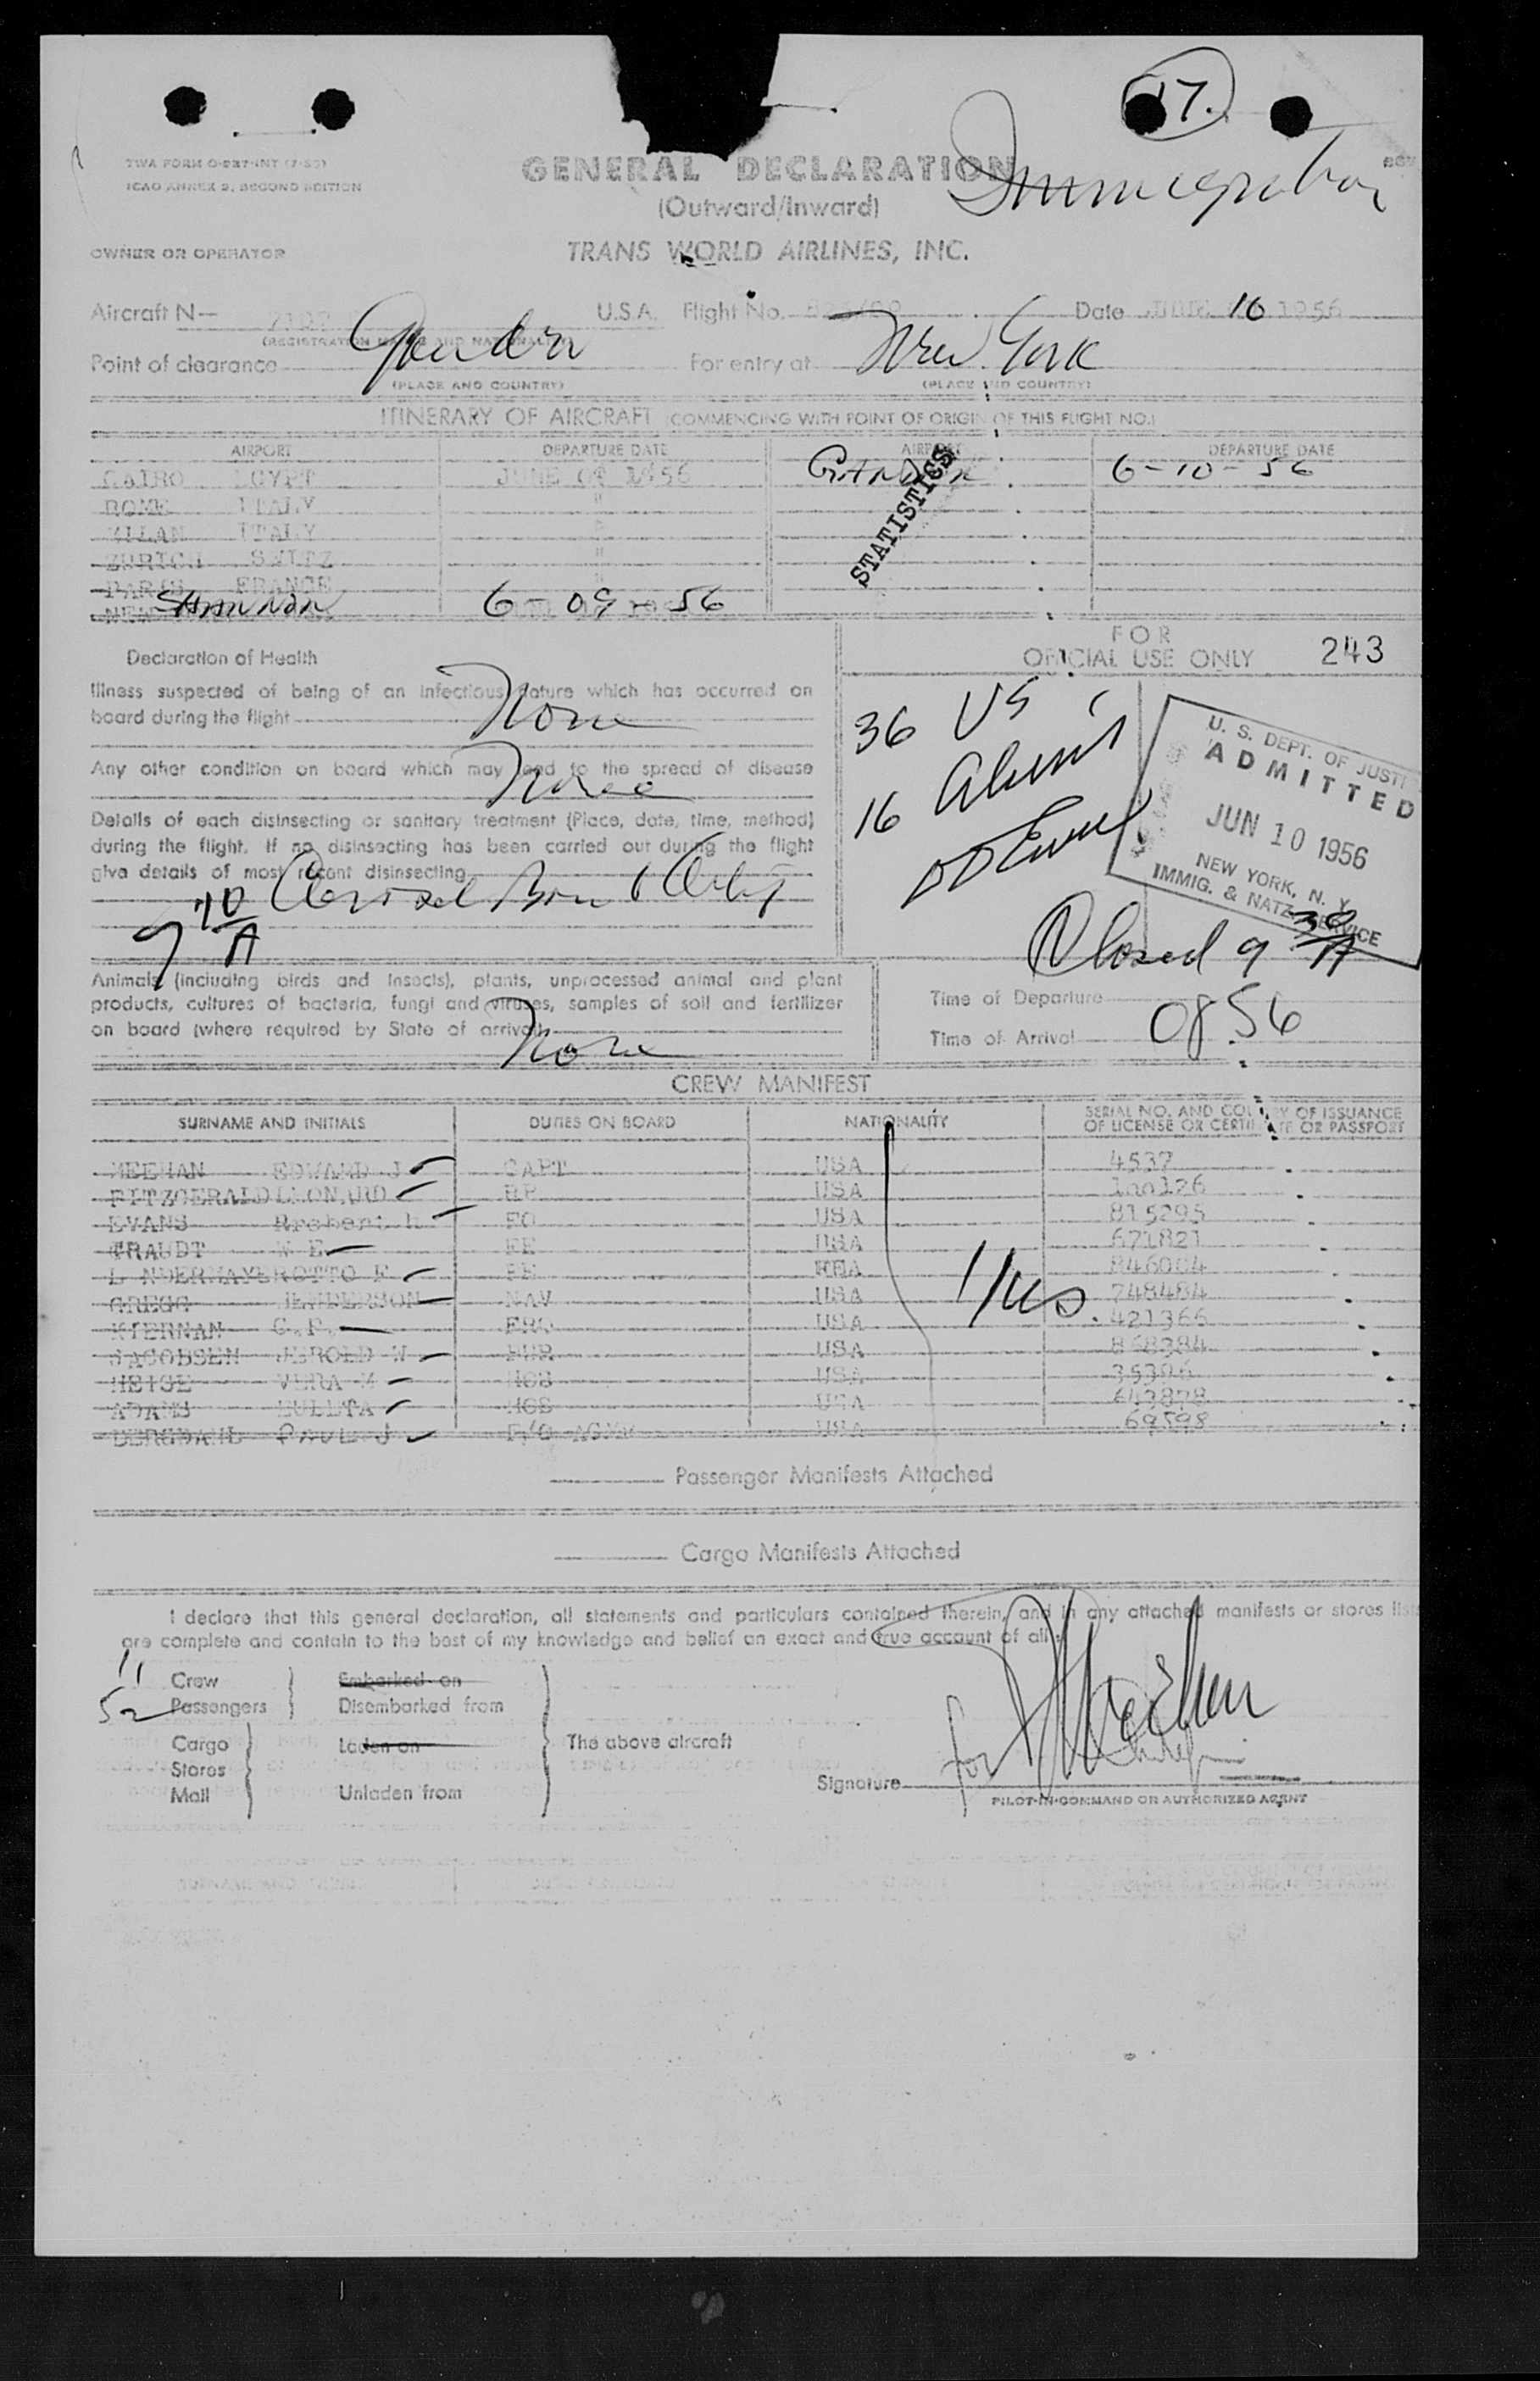 17.
Immigration
TWA FORM O-227-INT (7-53)
ICAO ANNEX 9, SECOND EDITION
GENERAL DECLARATION
(Outward/Inward)
OWNER OR OPERATOR
TRANS WORLD AIRLINES, INC.
Aircraft N— U.S.A. Flight No. Date JUNE 10 1956
(REGISTRATION MARKS AND NATIONALITY)
Point of clearance Gander For entry at New York
(PLACE AND COUNTRY) (PLACE AND COUNTRY)
ITINERARY OF AIRCRAFT (COMMENCING WITH POINT OF ORIGIN OF THIS FLIGHT NO.)
AIRPORT DEPARTURE DATE AIRPORT DEPARTURE DATE
CAIRO GYPT JUNE 09 1956 GANDER 6-10-56
ROME ITALY "
MILAN ITALY "
ZURICH SWITZ "
PARIS FRANCE "
SHANNON 6-09-56
STATISTICS
Declaration of Health
FOR
OFFICIAL USE ONLY 243
Illness suspected of being of an infectious nature which has occurred on
board during the flight None
Any other condition on board which may lead to the spread of disease
None
Details of each disinsecting or sanitary treatment (Place, date, time, method)
during the flight. If no disinsecting has been carried out during the flight
give details of most recent disinsecting
Aerosol Bomb
36 US
16 Aliens
U. S. DEPT. OF JUSTI
ADMITTED
JUN 10 1956
NEW YORK, N. Y.
IMMIG. & NATZ. SERVICE
Closed 9 30/A
Animals (including birds and insects), plants, unprocessed animal and plant
products, cultures of bacteria, fungi and viruses, samples of soil and fertilizer
on board (where required by State of arrival)
None
Time of Departure
Time of Arrival 0856
CREW MANIFEST
SURNAME AND INITIALS DUTIES ON BOARD NATIONALITY SERIAL NO. AND COUNTRY OF ISSUANCE
OF LICENSE OR CERTIFICATE OR PASSPORT
MEEHAN EDWARD J CAPT USA 4537
FITZGERALD LEONARD USA 100126
EVANS Rrobert FO USA 815295
TRAUDT W E FE USA 671821
L NDERMAYER OTTO F FE 846004
GREGG HENDERSON NAV USA 748484
KIERNAN C.P. FRO USA 421366
JACOBSEN JEROLD W PUR USA 868384
HEISE VERA M HOS USA 35396
ADAMS HOS USA 643878
PAUL J USA 69598
11/US
Passenger Manifests Attached
Cargo Manifests Attached
I declare that this general declaration, all statements and particulars contained therein, and in any attached manifests or stores lists
are complete and contain to the best of my knowledge and belief an exact and true account of all:
11 Crew Embarked on
52 Passengers Disembarked from
Cargo Laden on The above aircraft
Stores
Mail Unladen from
Signature for Meehan
PILOT-IN-COMMAND OR AUTHORIZED AGENT